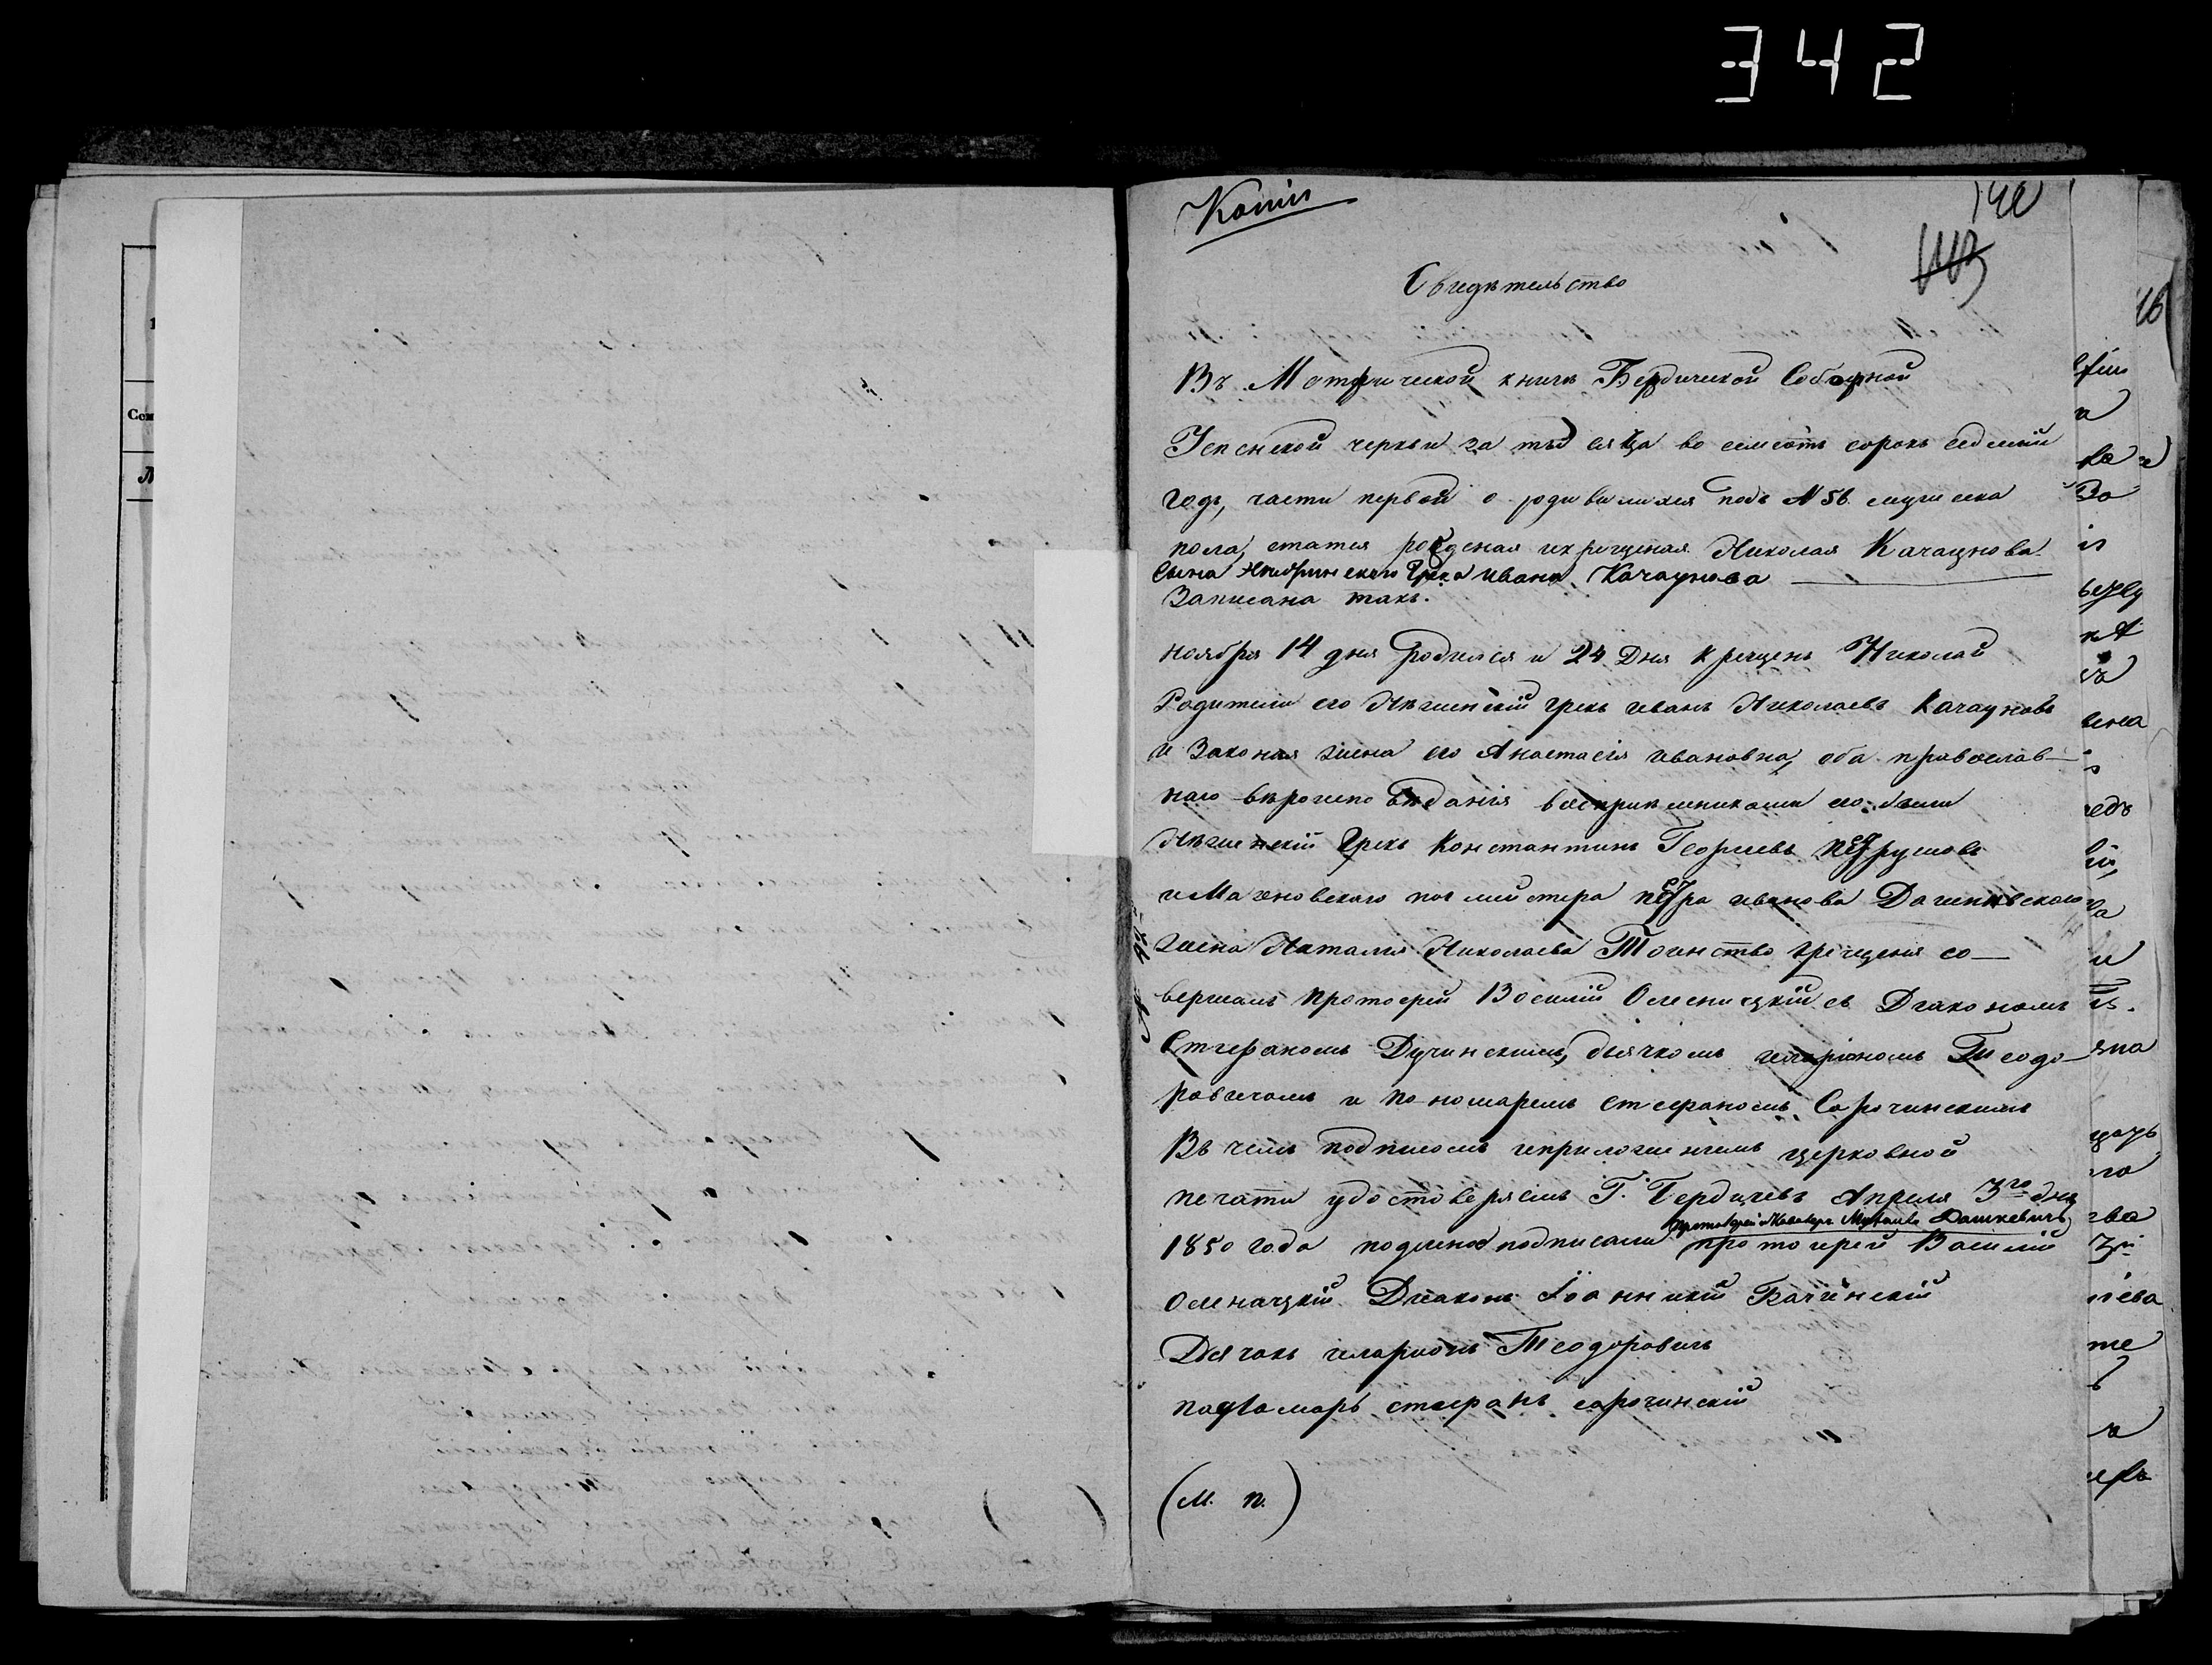 342
Копія
140
Свидѣтельство
Въ Метрической книгѣ Бердичевской Соборной
Успенской церкви за тысяча восемсотъ сорокъ седмый
годъ, части первой о родившихся подъ № 56 мужеска
пола, статья рожденая и крещеная Николая Качаунова
Сына Нѣжинскаго Грека Ивана Качаунова
Записана такъ.
ноября 14 дня родился и 24 Дня крещенъ Николай
Родители его Нѣжинскій грекъ иванъ Николаевъ Качауновъ
и Законая жена его Анастасія ивановна, оба православ-
наго вѣроисповѣданія воспріемниками его были
Нѣжинскій Грекъ Константинъ Георгіевъ
и Махновского почмистера петра иванова
жена Наталія Николаева Таинство крещенія со-
вершалъ протоерей Василій Олесницкій съ Діакономъ
Стефаномъ Дучинскимъ, дьячкомъ иларіономъ Теодо-
ровичомъ и пономаремъ стефаномъ Сорочинскимъ
Въ чемъ подписомъ и приложеніемъ церковной
печати удостоверяемъ Г. Бердичевъ Апреля 3го дня
протоерей Кавалеръ Дашкевичъ
1850 года подленое подписали протоиерей Василій
Олесницкій Диаконъ Іоанникій Бачинскій
Дьячокъ иларионъ Теодоровичъ
паномарь стефанъ сорочинскій
(М. п.)